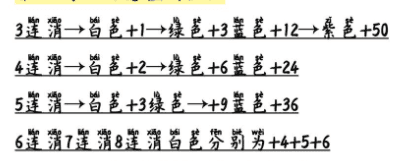 3连消→白色+1→绿色+3蓝色+12→紫色+50
4连消→白色+2→绿色+6蓝色+24
5连消→白色+3绿色→+9蓝色+36
6连消7连消8连消白色分别为+4+5+6